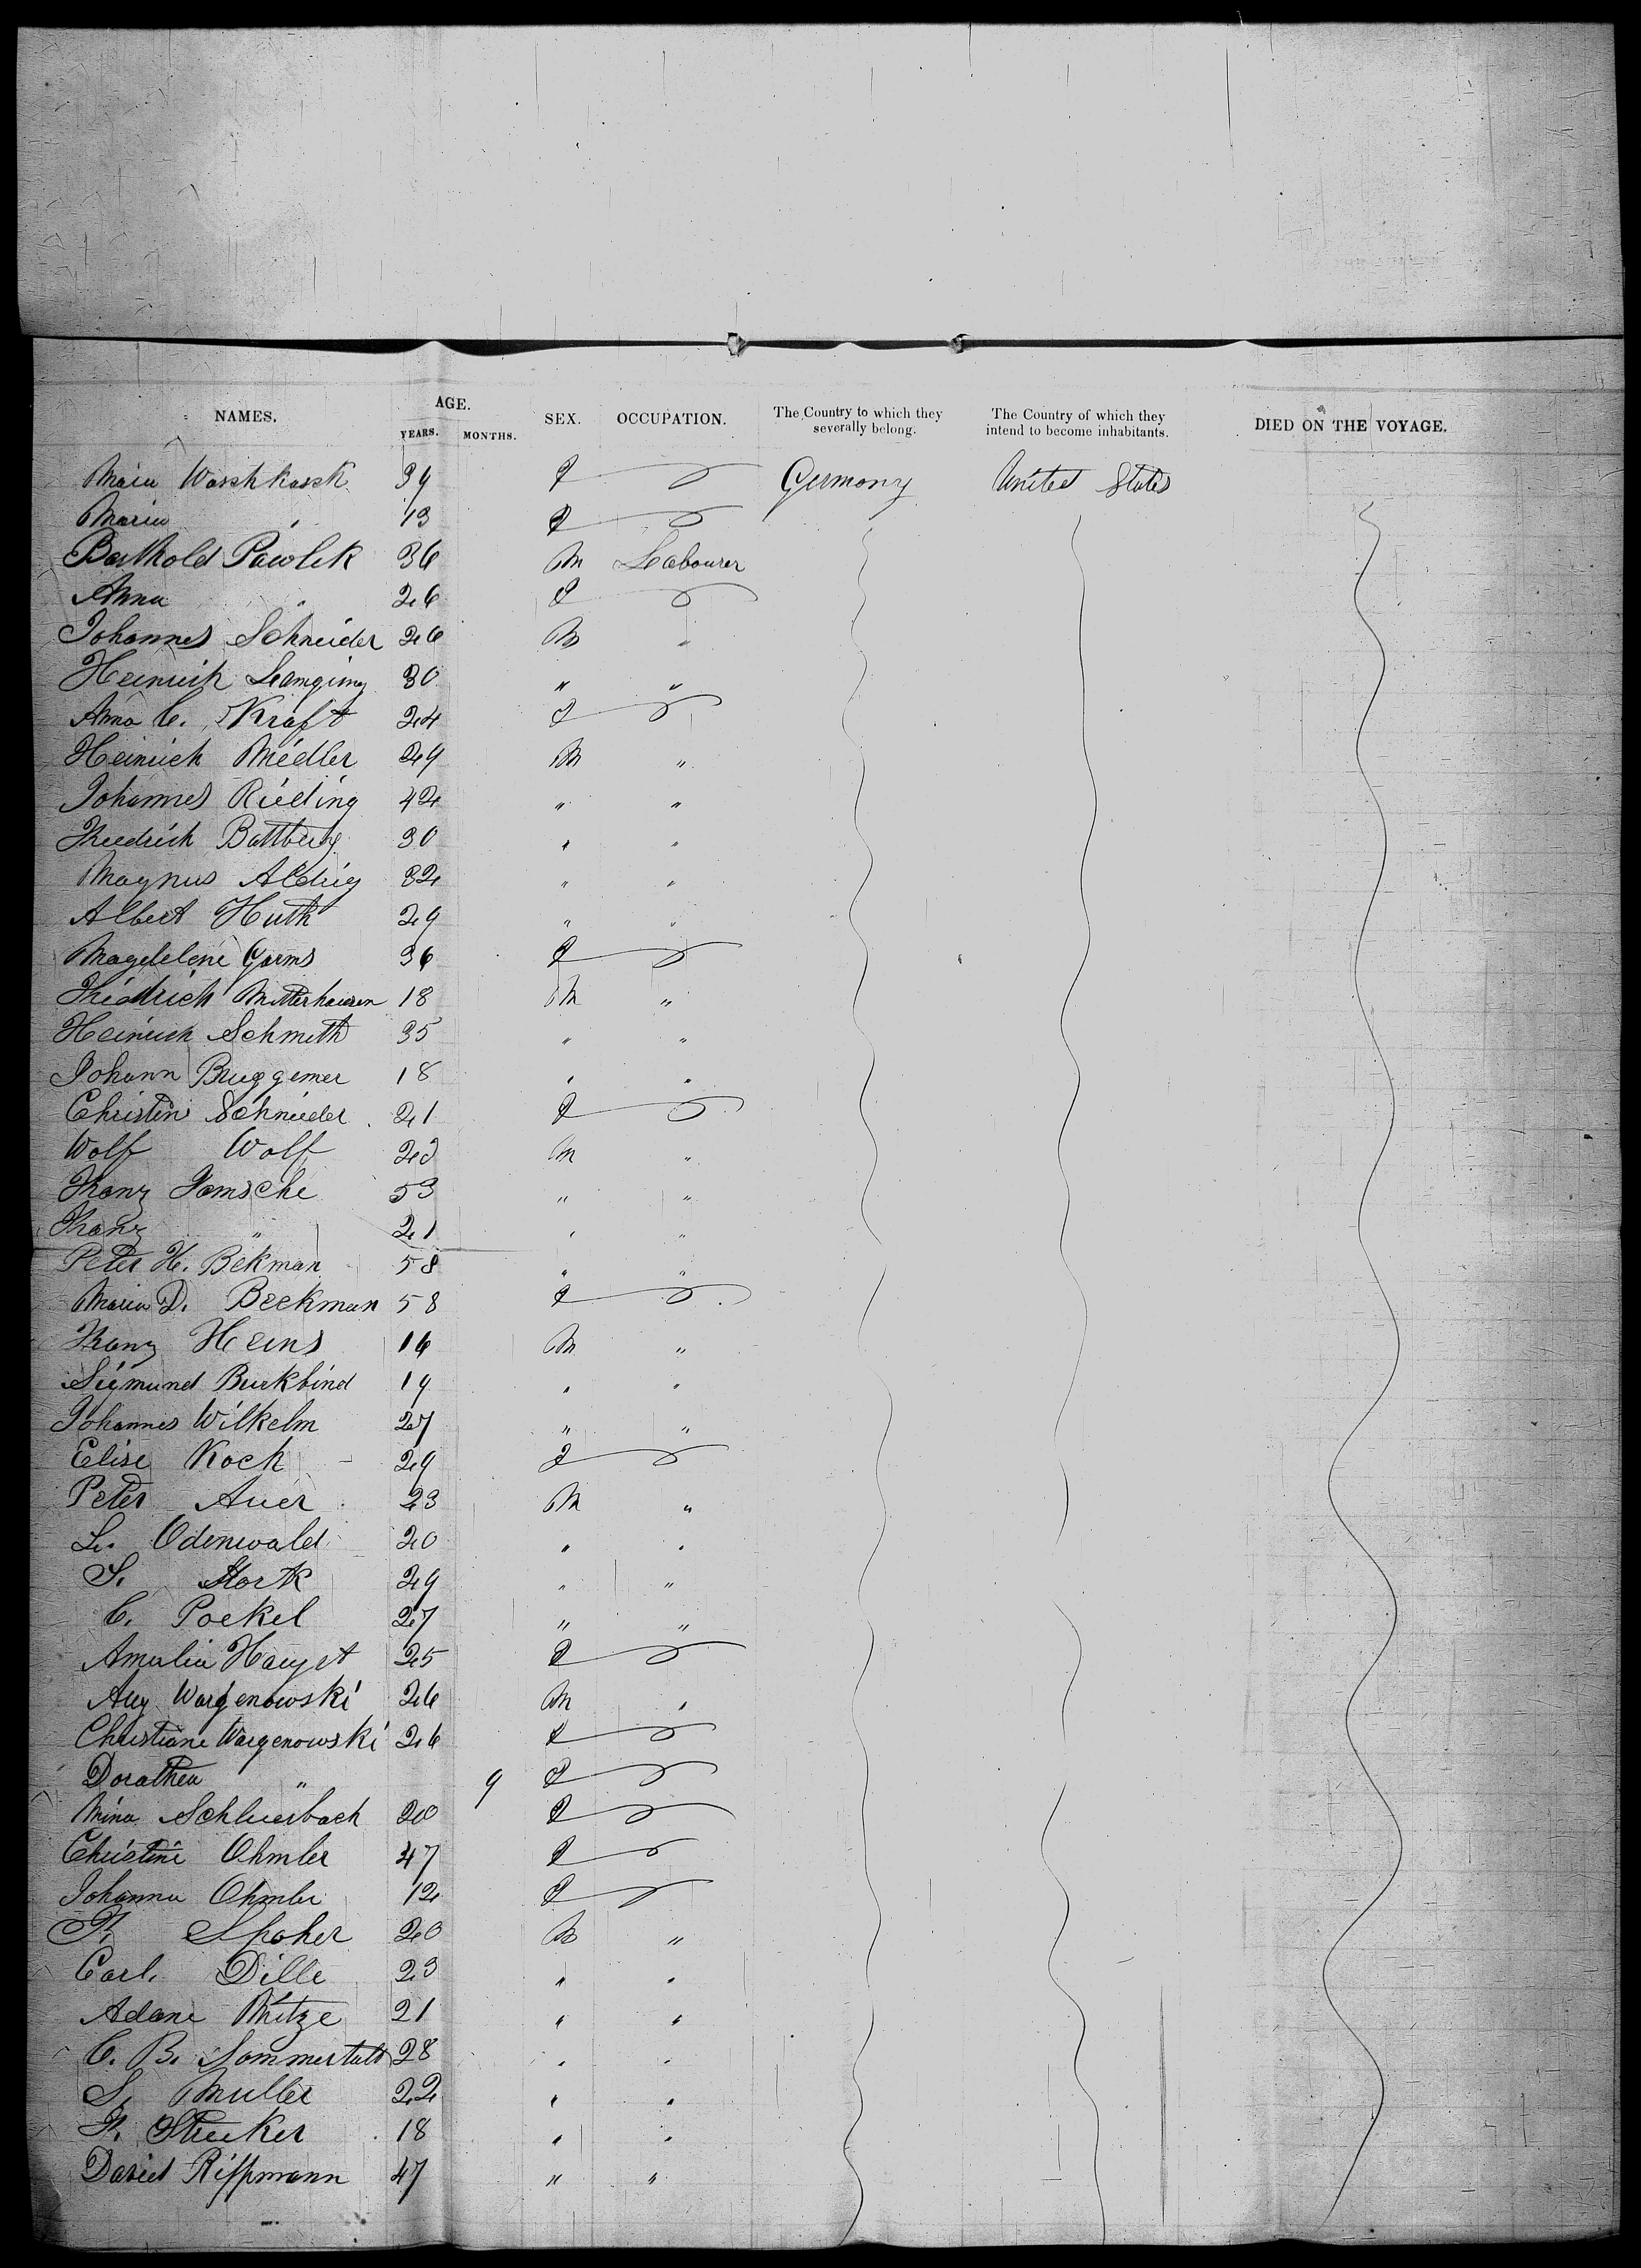 NAMES. AGE. YEARS. MONTHS. SEX. OCCUPATION. The Country to which they severally belong. The Country of which they intend to become inhabitants. DIED ON THE VOYAGE.
Maria Waschkassk 34 f Germany United States
Maria " 13 f
Barthold Pawlek 36 M Labourer
Anna " 26 f
Johannes Schneider 26 M "
Heinrich 30 " "
Anna C. Kraft 24 f
Heinrich Miedler 29 M "
Johannes Rieding 42 " "
Friedrich Battberg 30 " "
Magnus Aldrig 32 " "
Albert Huth 29 " "
Magdelene Garms 36 f
Friedrich Mitterhausen 18 M "
Heinrich Schmith 35 " "
Johann Bruggemer 18 " "
Christin Schnieder 21 f
Wolf Wolf 23 M "
Franz Jamsche 53 " "
Franz " 21 " "
Peter H. Bekman 58 " "
Maria D. Beekman 58 f
Franz Heins 16 M "
Siegmund Buckbind 19 " "
Johannes Wilhelm 27 " "
Elise Koch 29 f
Peter Auer 23 M "
L. Odenwald 20 " "
S. Stork 29 " "
C. Poekel 27 " "
Amalia Haupt 25 f
Aug Wargenowski 26 M "
Christiane Wargenowski 26 f
Dorathea " 9 f
Mina Schluerbach 20 f
Christine Ohmler 47 f
Johanna Ohmler 12 f
F. Spoher 20 M "
Carl Dille 23 " "
Adam Mitze 21 " "
C. B. Sommerlatt 28 " "
S. Muller 22 " "
F. Strecker 18 " "
Daniel Rippmann 47 " "